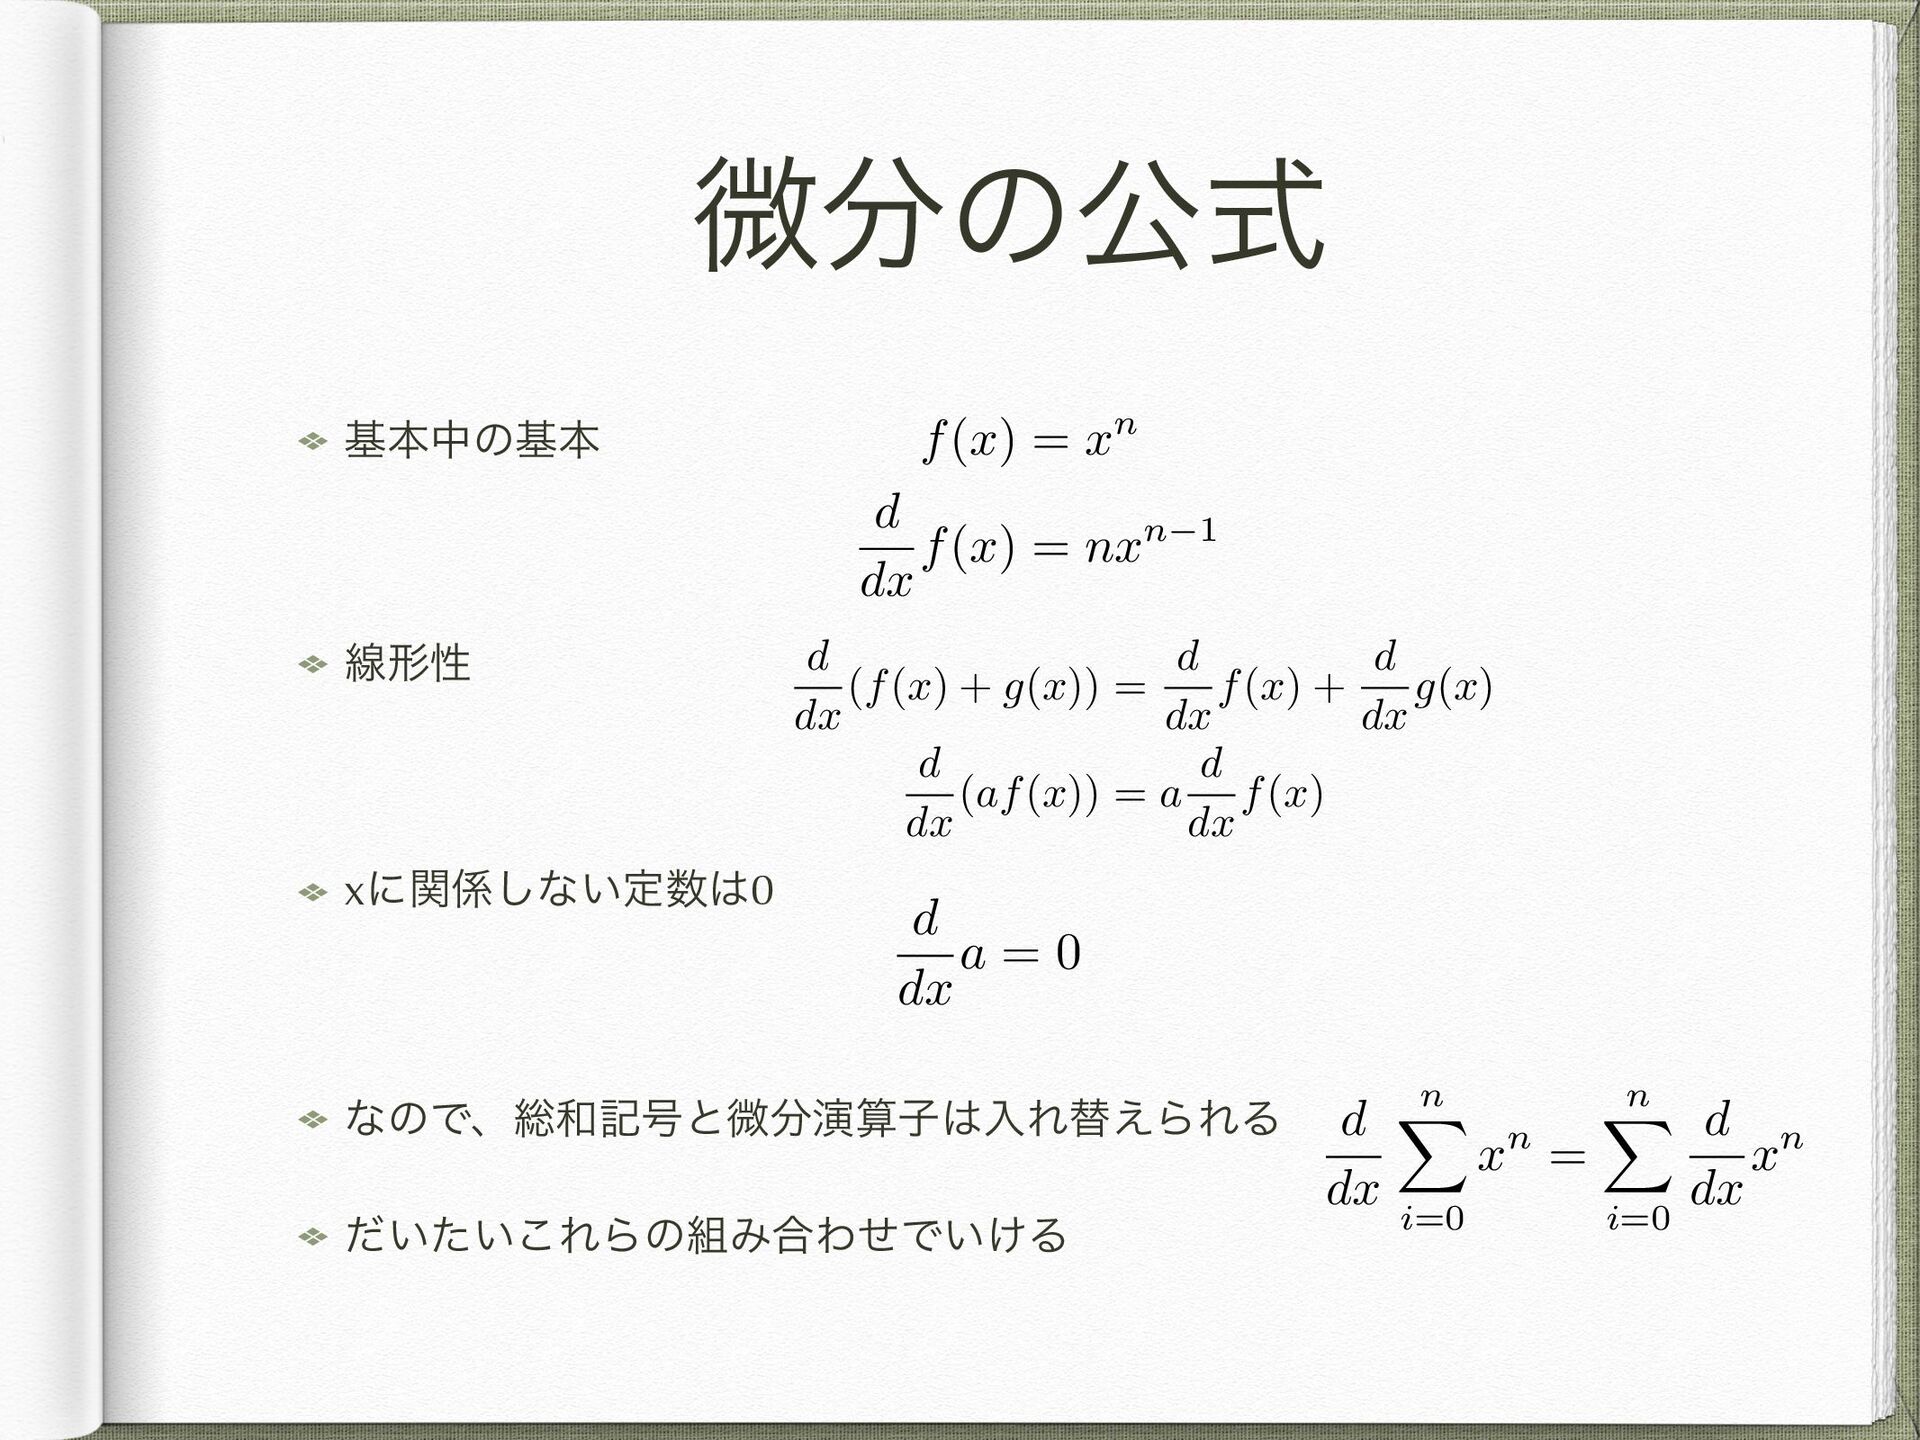 微分の公式
基本中の基本
f(x) = x^n
d/dx f(x) = nx^{n-1}
線形性
d/dx (f(x) + g(x)) = d/dx f(x) + d/dx g(x)
d/dx (af(x)) = a d/dx f(x)
xに関係しない定数は0
d/dx a = 0
なので、総和記号と微分演算子は入れ替えられる
d/dx ∑_{i=0}^{n} x^n = ∑_{i=0}^{n} d/dx x^n
だいたいこれらの組み合わせでいける